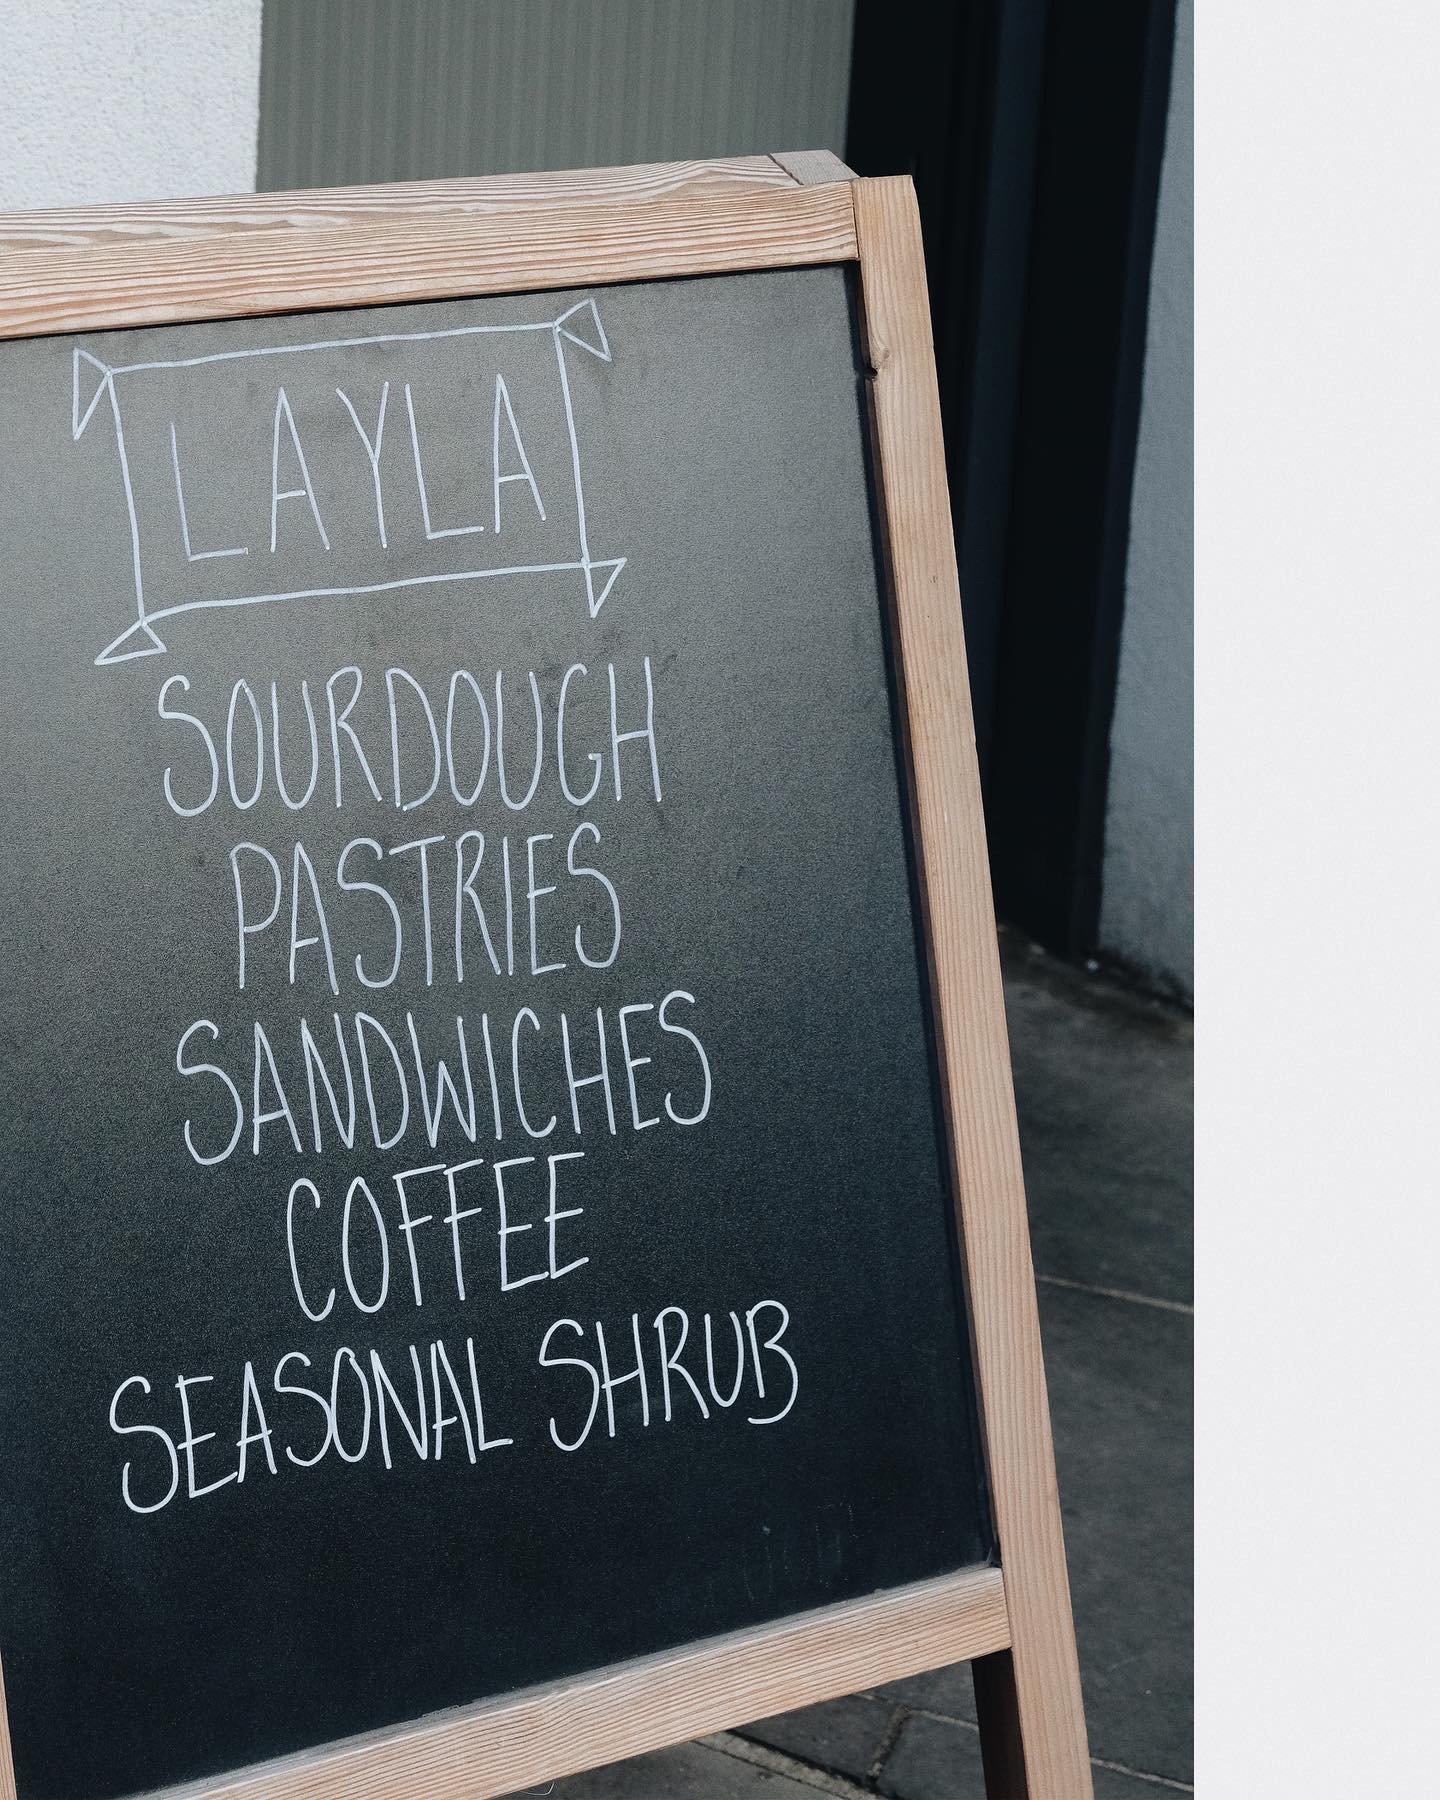 LAYLA
SOURDOUGH
PASTRIES
SANDWICHES
COFFEE
SEASONAL SHRUB